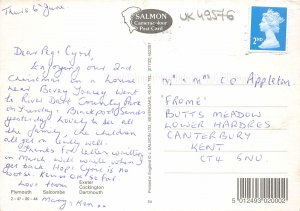 Thurs 6 June
SALMON
Cameracolour
Post Card
UK 49576
2ND
Dear Peg & Cyril,
Enjoying our 2nd
in a house
near Bovey Tracey went
to River Dart Country Park
on Tuesday & Buckfast
yesterday lovely to see all
the family, the children
all get on really well.
Thanks for letter written
in March will write when I
get back. Hope Cyril is no
Love from
Mary, Ken
Mr & Mrs C E Appleton
"FROME"
BUTTS MEADOW
LOWER HARDRES
CANTERBURY
KENT
CT4 5NU
Exeter
Plymouth Salcombe Cockington
2-47-06-44 Dartmouth
5 012493 020002